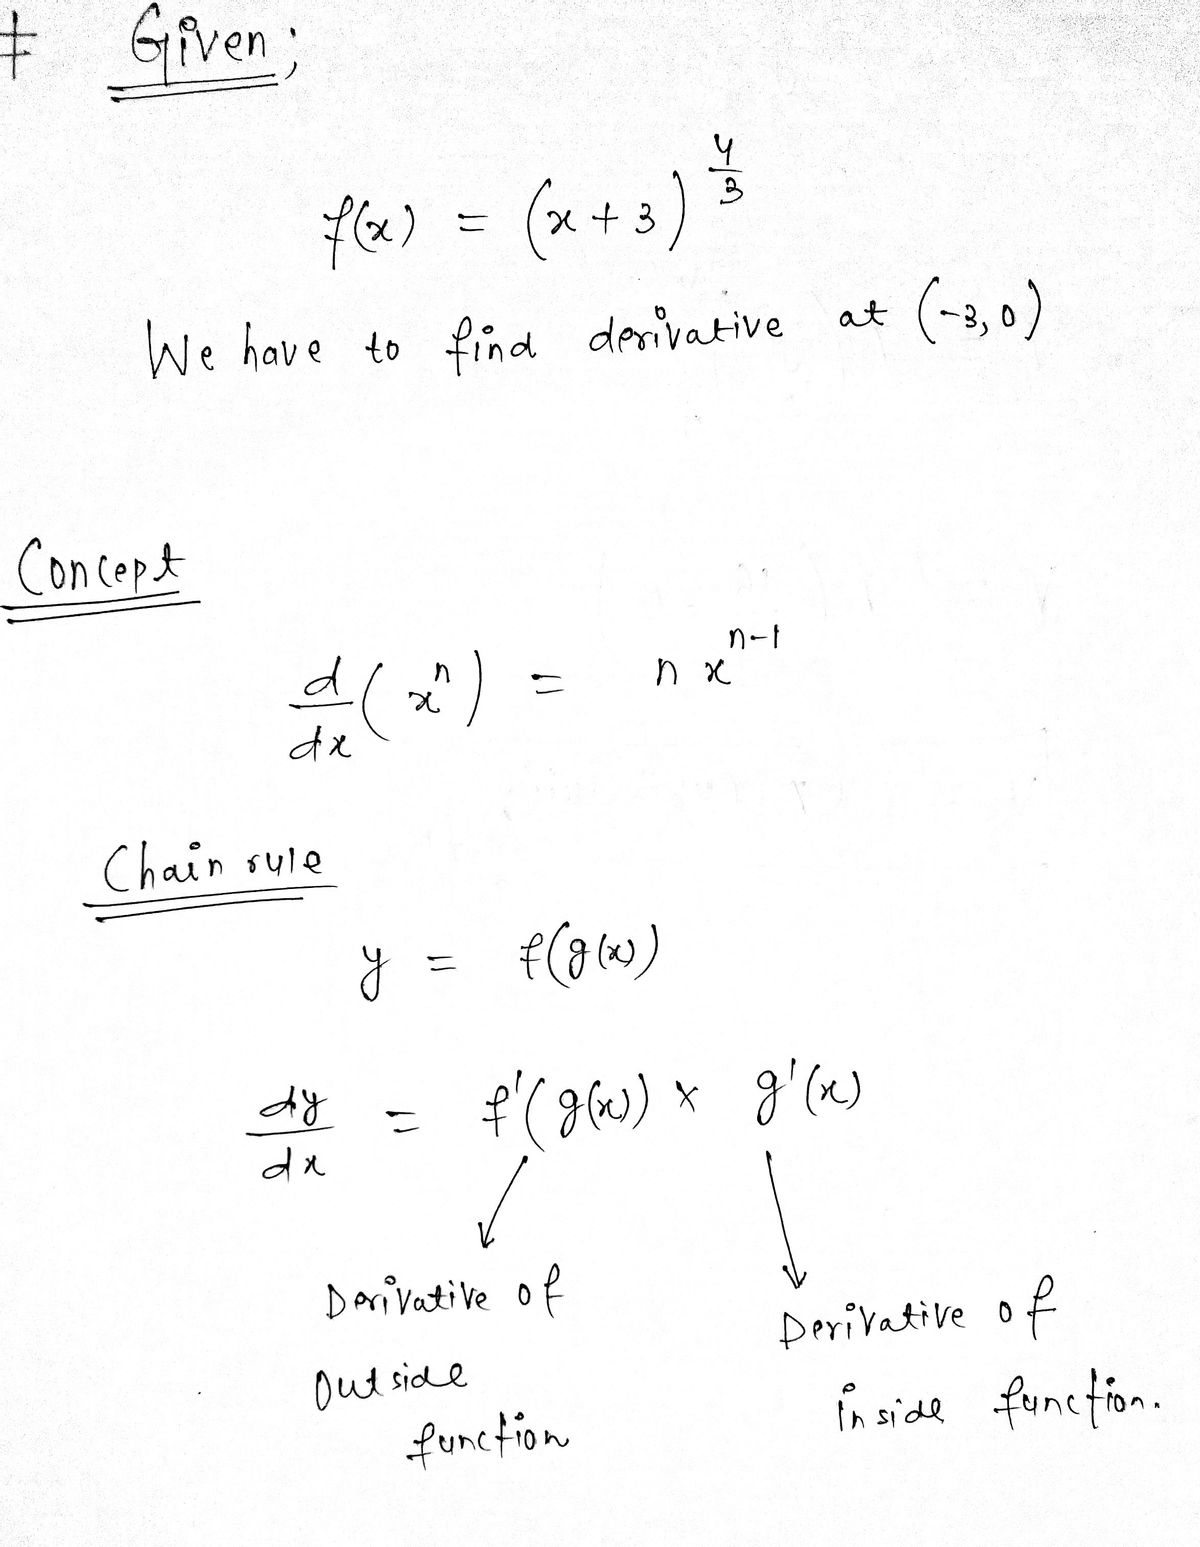 ‡ Given ;
f(x) = (x+3)^(4/3)
We have to find derivative at (-3,0)
Concept
d/dx (x^n) = n x^(n-1)
Chain rule
y = f(g(x))
dy/dx = f'(g(x)) × g'(x)
Derivative of
outside
function
Derivative of
inside function.